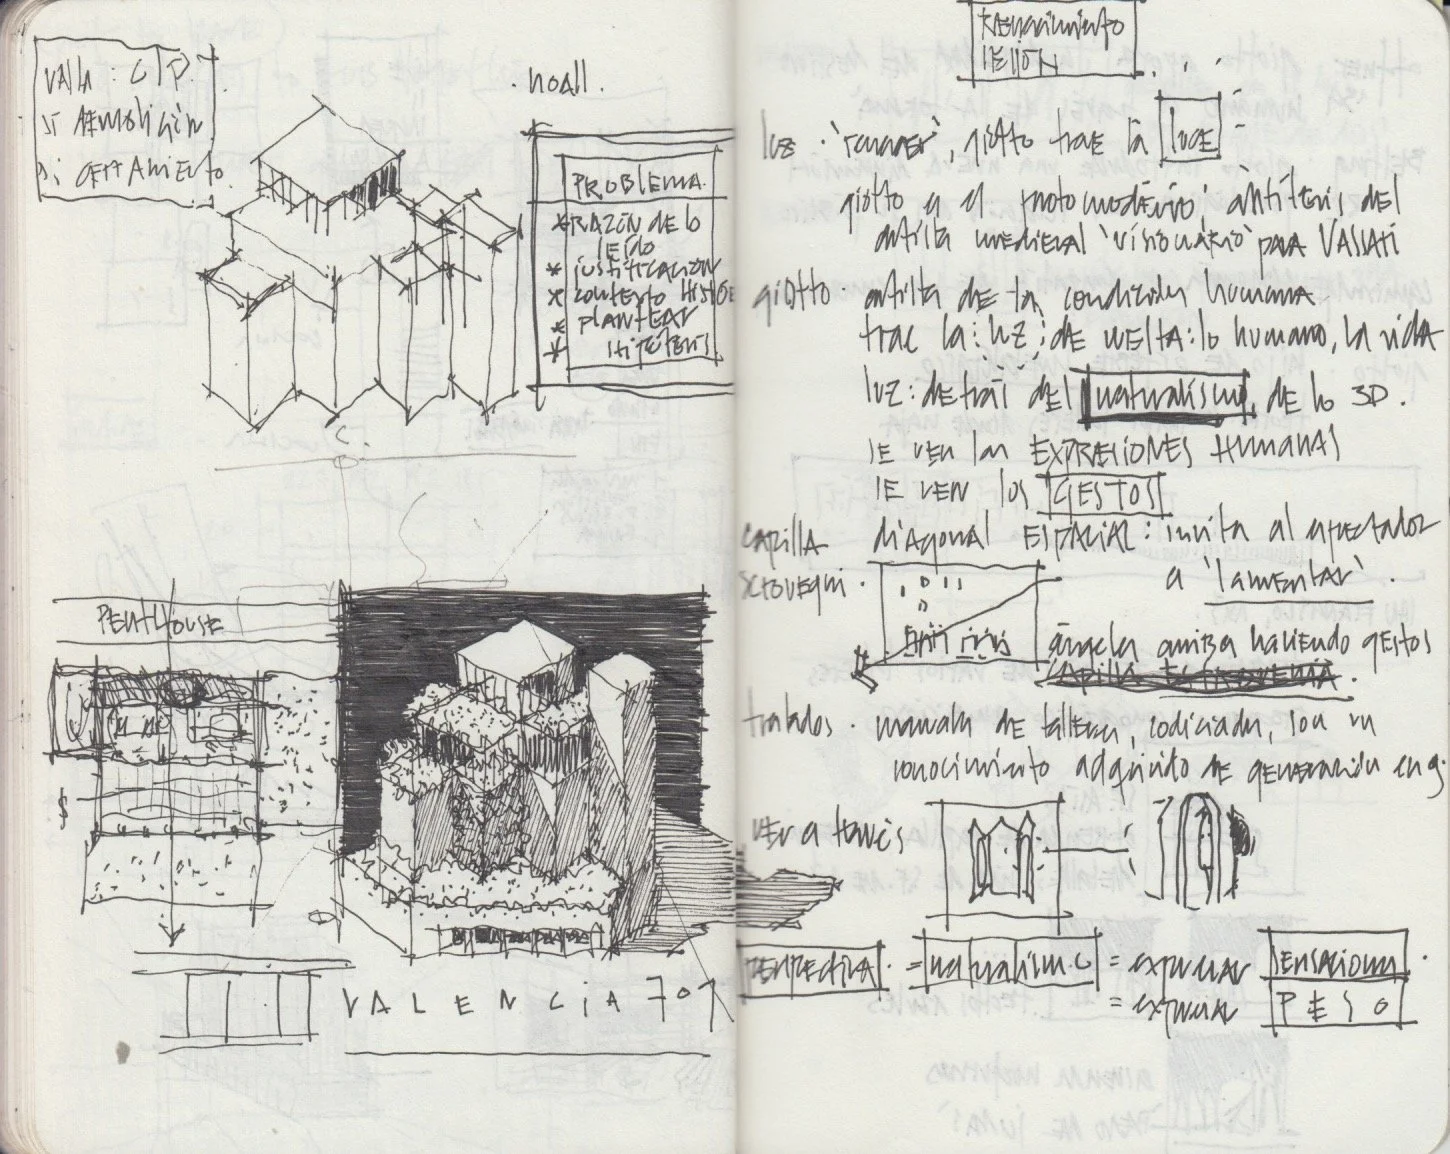 valla : C/P.
si demolición
si cerramiento.
. noall .
PROBLEMA.
* RAZÓN de lo
leído
* justificación
* contexto
* plantear
* hipótesis
C.
PENTHOUSE
$
VALENCIA 707
Renacimiento
. . .
luz . 'renacer', giotto trae la luce
giotto es el proto moderno; antítesis del
artista medieval 'visionario' para VASSARI
giotto . artista de la condición humana
trae la: luz ; de vuelta: lo humano, la vida
luz: detrás del naturalismo, de lo 3D .
se ven las EXPRESIONES Humanas
se ven los GESTOS
capilla diagonal ESPACIAL : invita al espectador
scrovegni . a 'lamentar' .
ángeles arriba haciendo gestos
tratados . manuales de talleres, codiciados, son un
conocimiento adquirido de generación en g.
perspectiva . = naturalismo = expresar sensaciones .
= expresar PESO